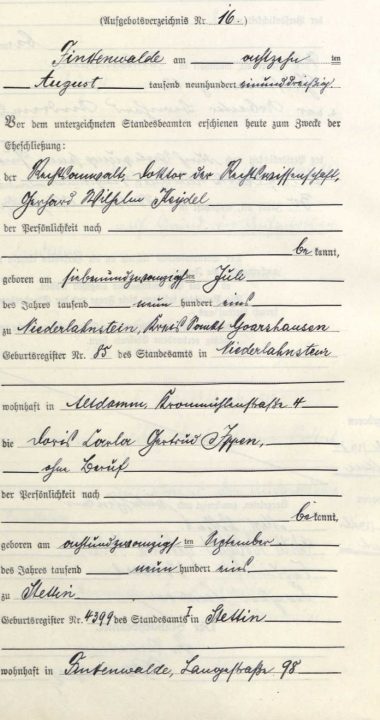 (Aufgebotsverzeichnis Nr. 16.)
Finkenwalde am achtzehn ten
August tausend neunhundert einunddreißig.
Vor dem unterzeichneten Standesbeamten erschienen heute zum Zwecke der
Eheschließung:
der Rechtsanwalt, Doktor der Rechtswissenschaft,
Gerhard Wilhelm Keydel
der Persönlichkeit nach
be kannt,
geboren am siebenundzwanzigsten Juli
des Jahres tausend neun hundert eins
zu Niederlahnstein, Kreis Sankt Goarshausen
Geburtsregister Nr. 85 des Standesamts in Niederlahnstein
wohnhaft in Altdamm, Kronmühlenstraße 4
die Doris Carla Gertrud Ippen,
ohne Beruf
der Persönlichkeit nach
be kannt,
geboren am achtundzwanzigsten September
des Jahres tausend neun hundert eins
zu Stettin
Geburtsregister Nr. 4399 des Standesamts I in Stettin
wohnhaft in Finkenwalde, Langestraße 98